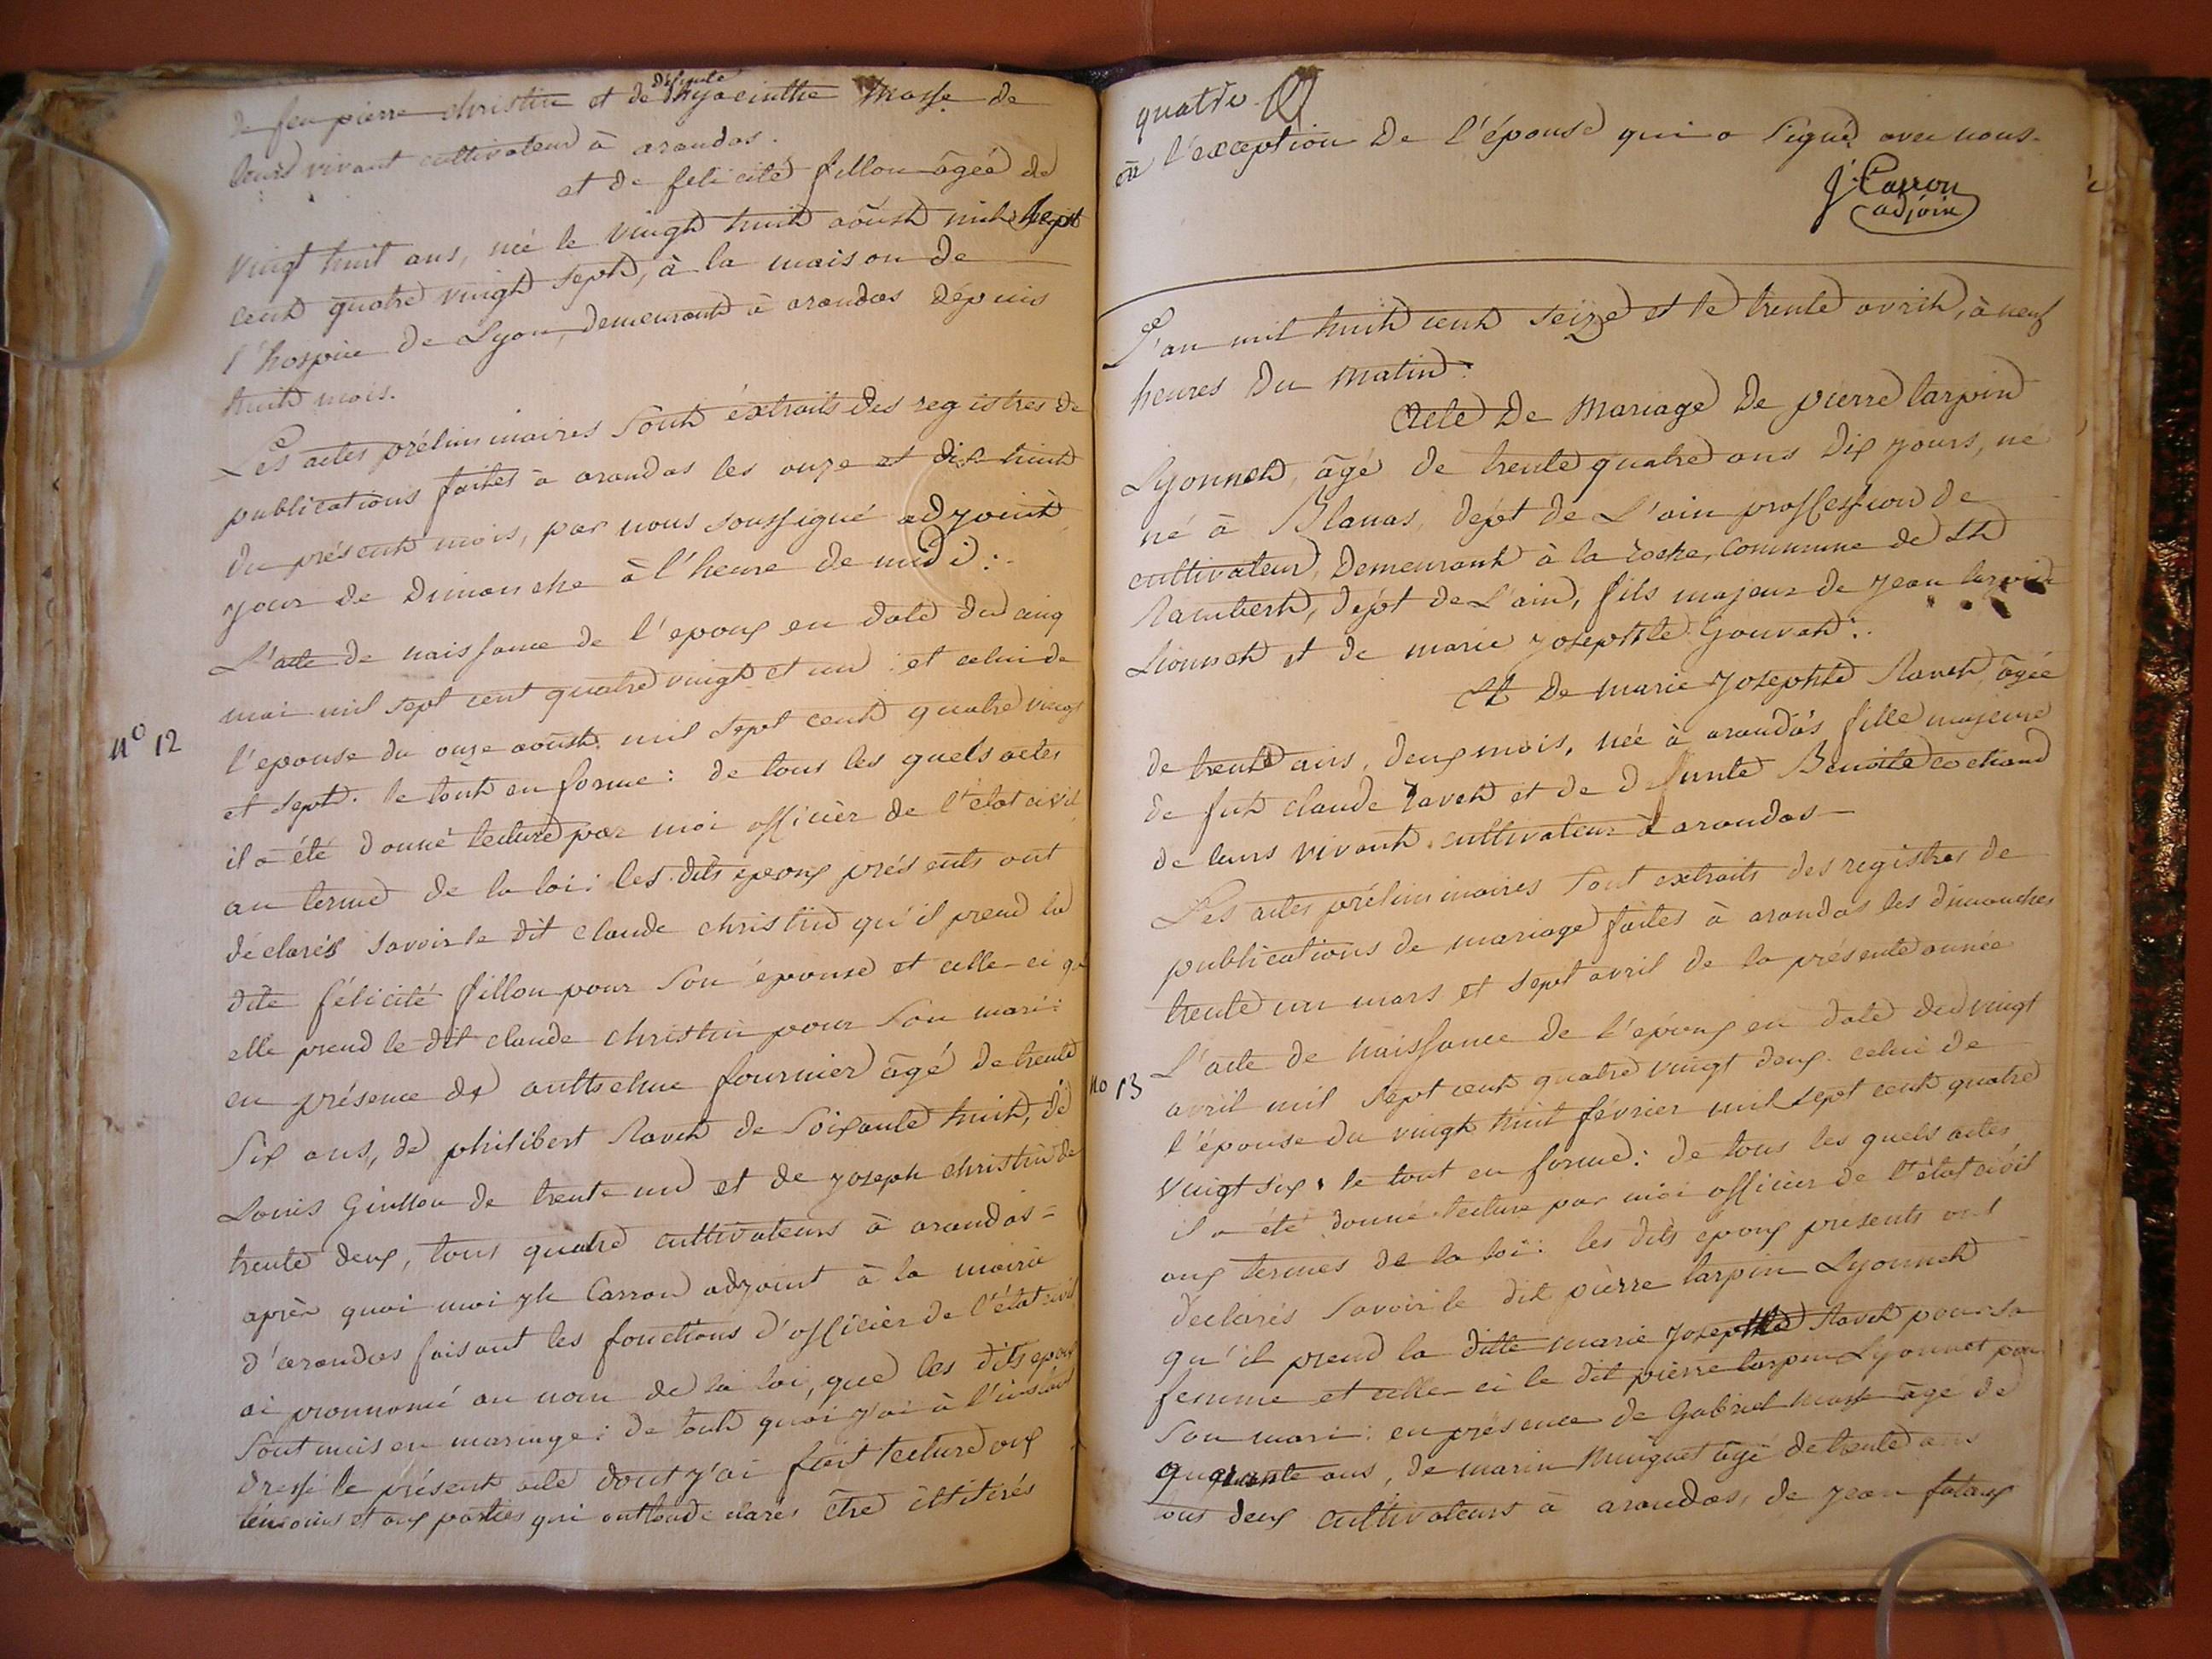 de feu pierre christin et de défunte hyacinthe masse de
leurs vivant cultivateur à arandas.
et de felicité fillon âgée de
vingt huit ans, née le vingt huit aoûst mil sept
cent quatre vingt sept, à la maison de
l'hospice de Lyon, demeurant à arandas dépuis
huit mois.
Les actes préliminaires sont éxtraits des registres de
publications faites à arandas les onze et dix huit
du présent mois, par nous soussigné adjoint
jour de dimanche à l'heure de midi :
L'acte de naissance de l'epoux en date du cinq
mai mil sept cent quatre vingt et un : et celui de
N° 12
l'epouse du onze aoûst mil sept cent quatre vingt
et sept. le tout en forme : de tous les quels actes
il a été donné lecture par moi officièr de l'état civil
au terme de la loi : les dits epoux présents ont
déclarés savoir le dit claude christin qu'il prend la
dite félicité fillon pour son épouse et celle-ci qu
elle prend le dit claude christin pour son mari :
en présence de anthelme fournier âgé de trente
six ans, de philibert Ravet de soixante huit, de
Louis Guillon de trente un et de joseph christin de
trente deux, tous quatre cultivateurs à arandas =
après quoi moi jh Carron adjoint à la mairie
d'arandas faisant les fonctions d'officièr de l'état civil
ai prononcé au nom de la loi, que les dits epoux
sont unis en mariage : de tout quoi j'ai à l'instant
dressé le présent acte dont j'ai fait lecture aux
témoins et aux parties qui ont tous déclarés être illitirés
quatre
à l'exception de l'épouse qui a signé avec nous.
J. Carron
adjoin
L'an mil huit cent seize et le trente avril, à neuf
heures du matin :
Acte de Mariage de pierre larpin
Lyonnet, âgé de trente quatre ans dix jours, né
né à Blanas, dépt de L'ain proffession de
cultivateur, demeurant à la roche, commune de St
Rambert, dépt de L'ain, fils majeur de jean larpin
Lionnet et de marie josephte Gouvat :
Et de marie josephte Ravet âgée
de trente ans, deux mois, née à arandas fille majeure
de fut claude Ravet et de defunte Benoite cochand
de leurs vivant cultivateur à arandas —
Les actes préliminaires sont extraits des registres de
publications de mariage faites à arandas les dimanches
trente un mars et sept avril de la présente année
L'acte de naissance de l'époux en date du vingt
No 13
avril mil sept cent quatre vingt deux. celui de
l'épouse du vingt huit février mil sept cent quatre
vingt six. le tout en forme : de tous les quels actes
il a été donné lecture par moi officier de l'état civil
aux termes de la loi : les dits epoux présents ont
declarés savoir le dit pièrre larpin Lyonnet
qu'il prend la ditte marie josephte Ravet pour sa
femme et celle-ci le dit pierre larpin Lyonnet pour
son mari : en présence de Gabriel masse âge de
quarante ans, de marin muignet âgé de trente ans
tous deux cultivateurs à arandas, de jean